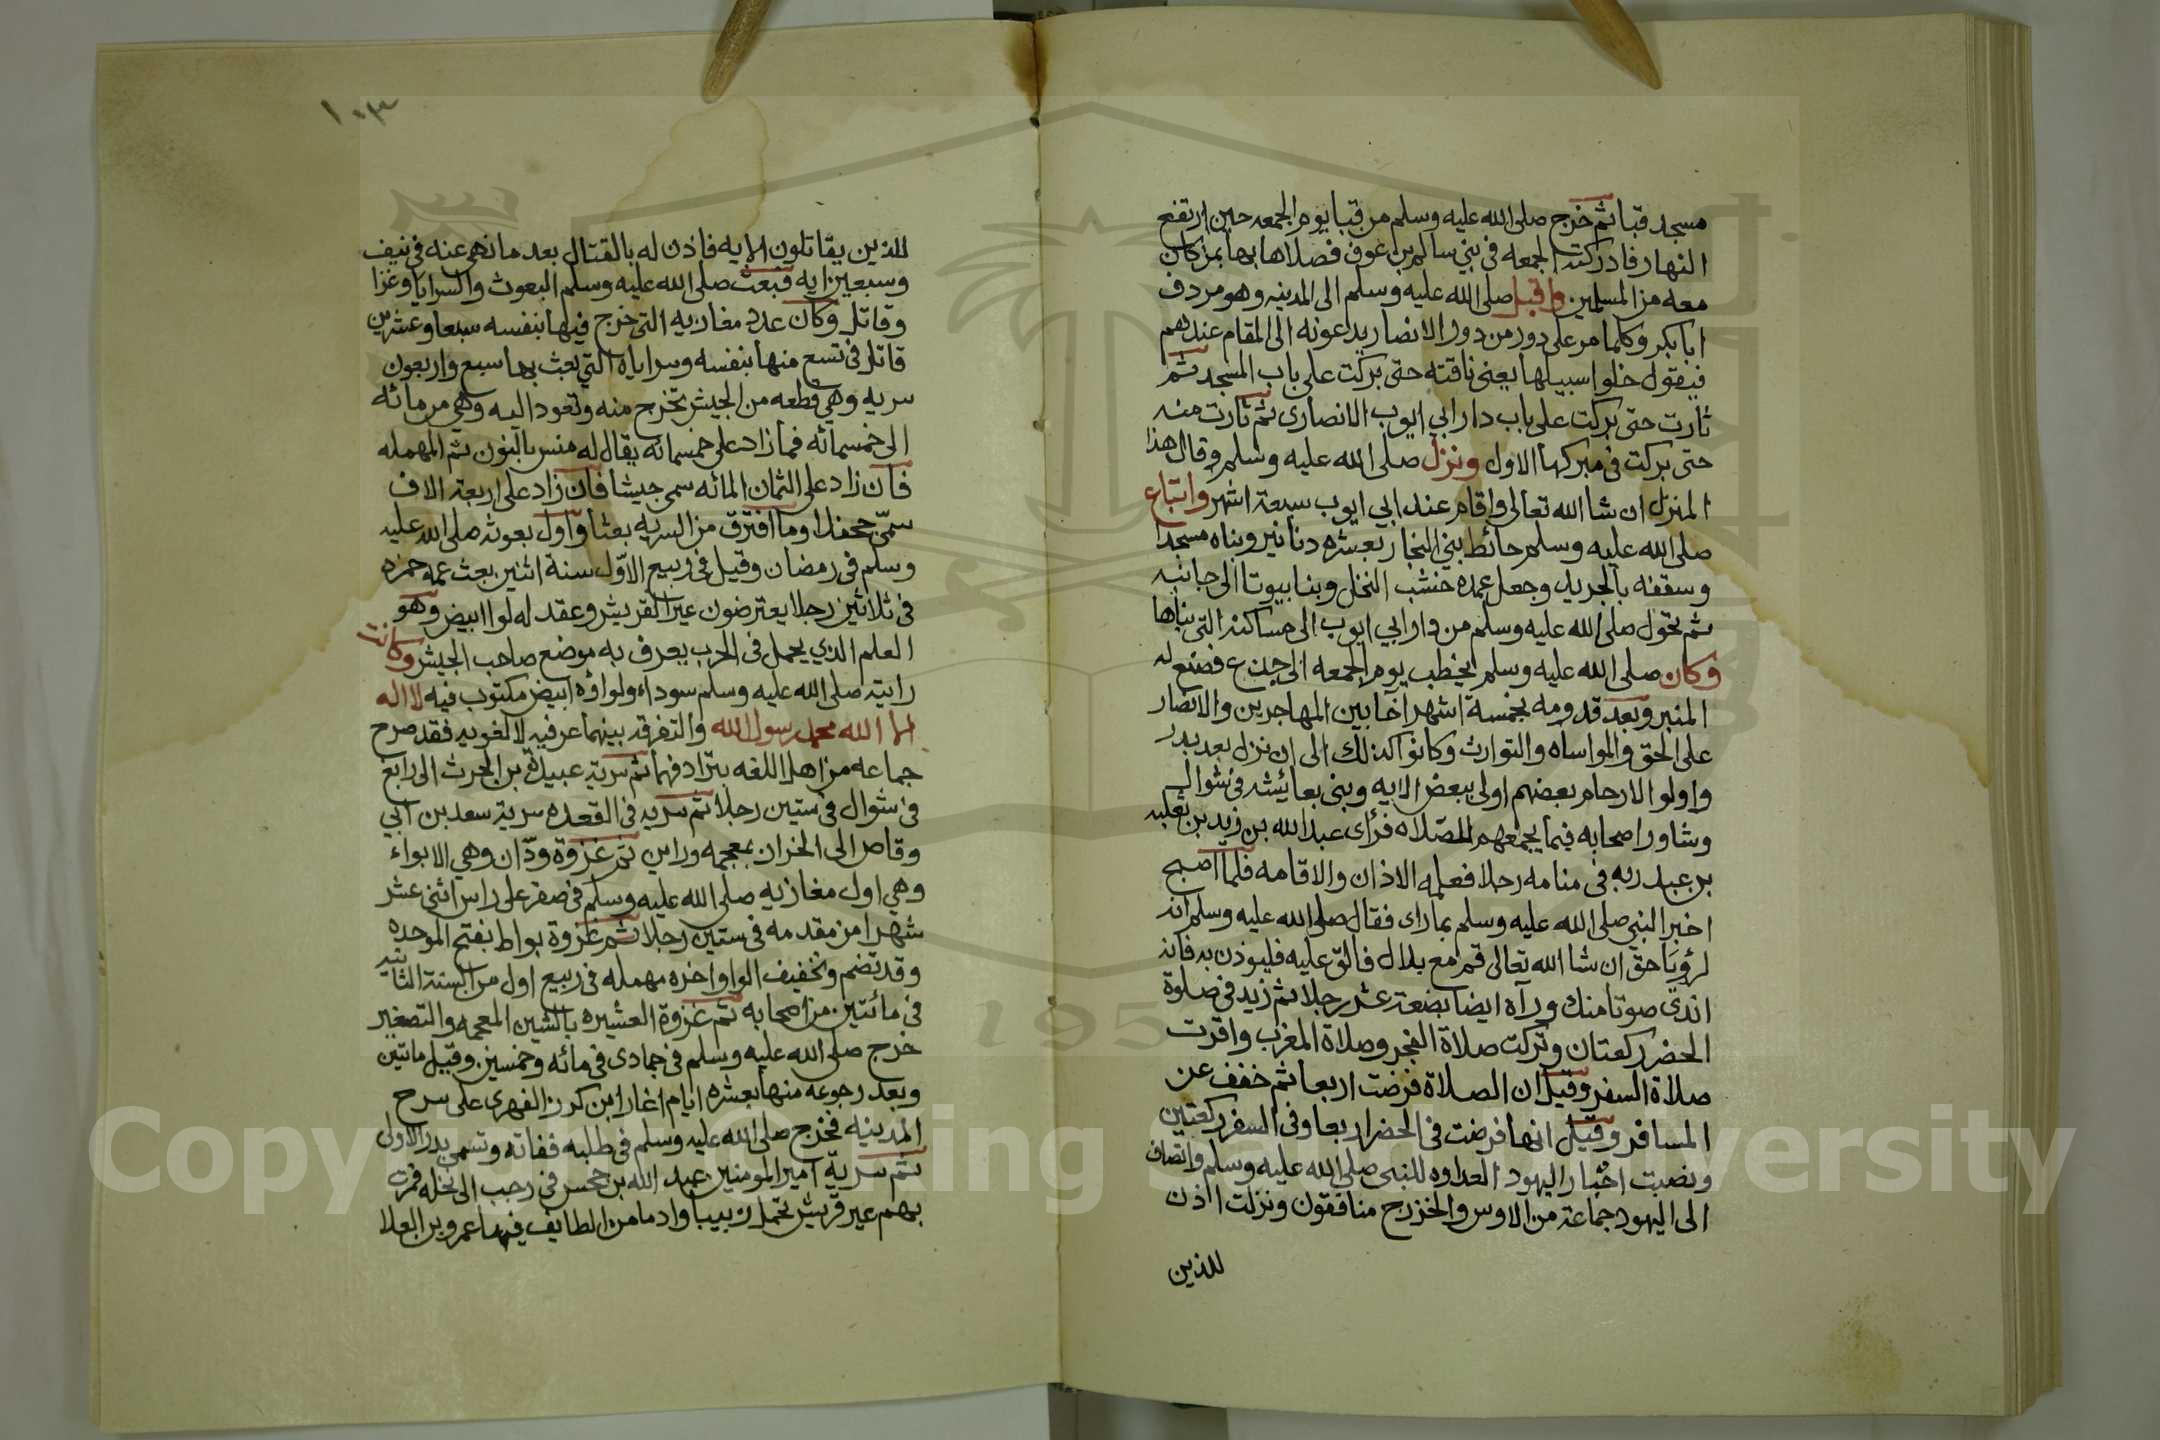 مسجد قبا ثم خرج صلى الله عليه وسلم من قبا يوم الجمعه حين ارتفع
النهار فادركته الجمعه في بني سالم بن عوف فصلاها بها بمن كان
معه من المسلمين واقبل صلى الله عليه وسلم الى المدينه وهو مردف
ابا بكر وكلما مر على دور من دور الانصار يدعونه الى المقام عندهم
فيقول خلوا سبيلها يعنى ناقته حتى بركت على باب المسجد ثم
ثارت حتى بركت على باب دار ابي ايوب الانصارى ثم ثارت منه
حتى بركت فى مبركها الاول ونزل صلى الله عليه وسلم وقال هذا
المنزل ان شا الله تعالى واقام عند ابي ايوب سبعة اشهر وابتاع
صلى الله عليه وسلم حائط بني النجار بعشره دنانير وبناه مسجدا
وسقفه بالجريد وجعل عمده خشب النخل وبنا بيوتا الى جانبه
ثم تحول صلى الله عليه وسلم من دار ابي ايوب الى مساكنه التى بناها
وكان صلى الله عليه وسلم يخطب يوم الجمعه الى جذع فصنع له
المنبر وبعد قدومه بخمسة اشهر اخا بين المهاجرين والانصار
على الحق والمواساه والتوارث وكانوا كذلك الى ان نزل بعد بدر
واولوا الارحام بعضهم اولى ببعض الايه وبنى بعائشه فى شوال
وشاور اصحابه فيما يجمعهم للصلاه فرأى عبد الله بن زيد بن ثعلبه
بن عبد ربه فى منامه رجلا فعلمه الاذان والاقامه فلما اصبح
اخبر النبي صلى الله عليه وسلم بماراى فقال صلى الله عليه وسلم انه
لرؤيا حق ان شا الله تعالى قم مع بلال فالق عليه فليوذن به فانه
اندى صوتا منك ورآه ايضا بضعة عشر رجلا ثم زيد فى صلوة
الحضر ركعتان وتركت صلاة الفجر وصلاة المغرب واقرت
صلاة السفر وقيل ان الصلاة فرضت اربعا ثم خفف عن
المسافر وقيل انها فرضت فى الحضر اربعا وفى السفر ركعتين
ونصبت احبار اليهود العداوه للنبى صلى الله عليه وسلم وانضاف
الى اليهود جماعة من الاوس والخزرج منافقون ونزلت اذن
للذين
١٠٣
للذين يقاتلون الايه فاذن له بالقتال بعد ما نهى عنه فى نيف
وسبعين ايه فبعث صلى الله عليه وسلم البعوث والسرايا وغزا
وقاتل وكان عدد مغازيه التى خرج فيها بنفسه سبعا وعشرين
قاتل فى تسع منها بنفسه وسراياه التي بعث بها سبع واربعون
سريه وهي قطعه من الجيش تخرج منه وتعود اليه وهي من مائه
الى خمسمائه فما زاد على خمسمائه يقال له منسر بالنون ثم المهمله
فان زاد على الثمان المائه سمى جيشا فان زاد على اربعة الاف
سمّى جحفلا وما افترق من السريه بعثا واول بعوثه صلى الله عليه
وسلم فى رمضان وقيل فى ربيع الاوّل سنة اثنين بعث عمه حمزه
فى ثلاثين رجلا يعترضون عيرا لقريش وعقد له لوا ابيض وهو
العلم الذي يحمل فى الحرب يعرف به موضع صاحب الجيش وكانت
رايته صلى الله عليه وسلم سوداء ولواؤه ابيض مكتوب فيه لا اله
الا الله محمد رسول الله والتفرقه بينهما عرفيه لا لغويه فقد صرح
جماعه من اهل اللغه بترادفهما ثم سرية عبيدة بن الحرث الى رابغ
فى شوال فى ستين رجلا ثم سريه فى القعده سرية سعد بن ابي
وقاص الى الخرار بمعجمه وراين ثم غزوة ودّان وهي الابواء
وهي اول مغازيه صلى الله عليه وسلم فى صفر على راس اثنى عشر
شهرا من مقدمه فى ستين رجلا ثم غزوة بواط بفتح الموحده
وقد تضم وتخفيف الواو اخره مهمله فى ربيع اول من السنة الثانيه
فى مائتين من اصحابه ثم غزوة العشيره بالشين المعجمه والتصغير
خرج صلى الله عليه وسلم فى جمادى فى مائه وخمسين وقيل ماتين
وبعد رجوعه منها بعشره ايام اغار ابن كرز الفهرى على سرح
المدينه فخرج صلى الله عليه وسلم فى طلبه ففاته وتسمى بدر الاولى
ثم سريّة امير المومنين عبد الله بن جحس فى رجب الى نخله فمرت
بهم عير قريش تحمل زبيبا وادما من الطايف فيها عمرو بن العلا
1957
Copyright © King Saud University